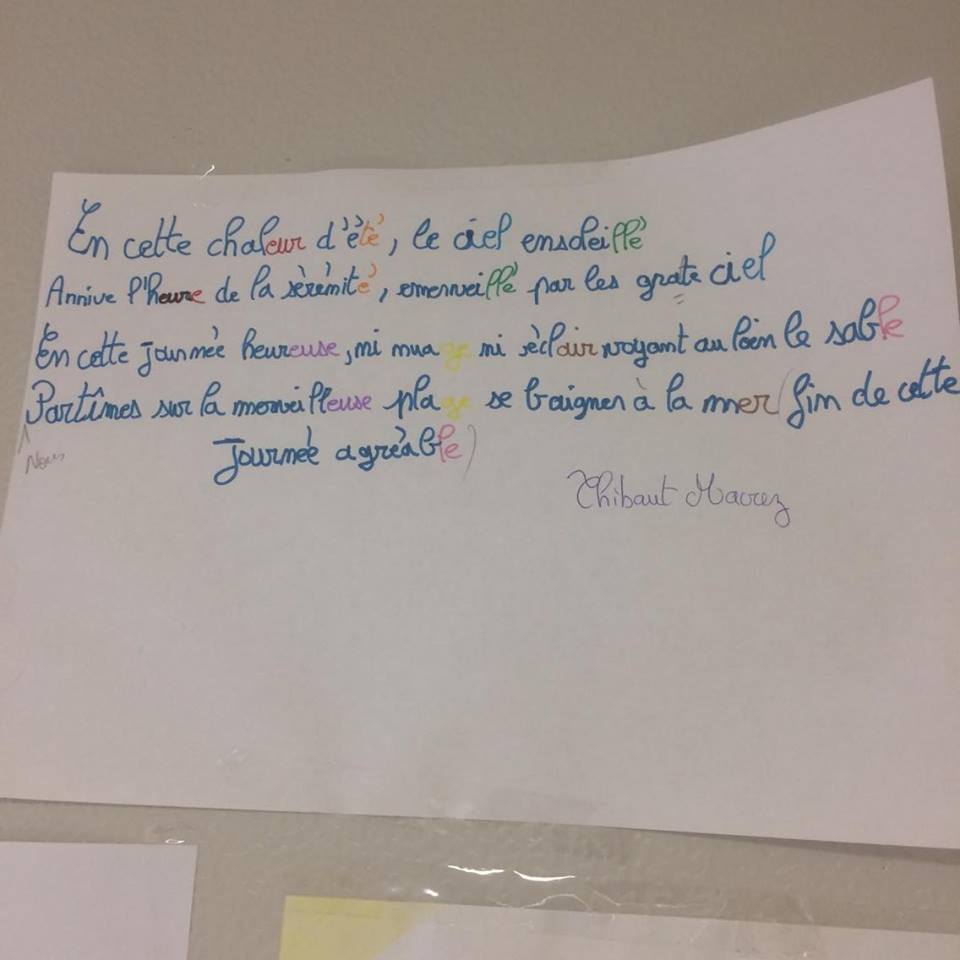 En cette chaleur d'été, le ciel ensoleillé
Arrive l'heure de la sérénité, emerveillé par les grate ciel
En cette journée heureuse, ni nuage ni éclair voyant au loin le sable
Partîmes sur la merveilleuse plage se baigner à la mer (fin de cette
Nous
journée agréable)
Thibaut Mavrez